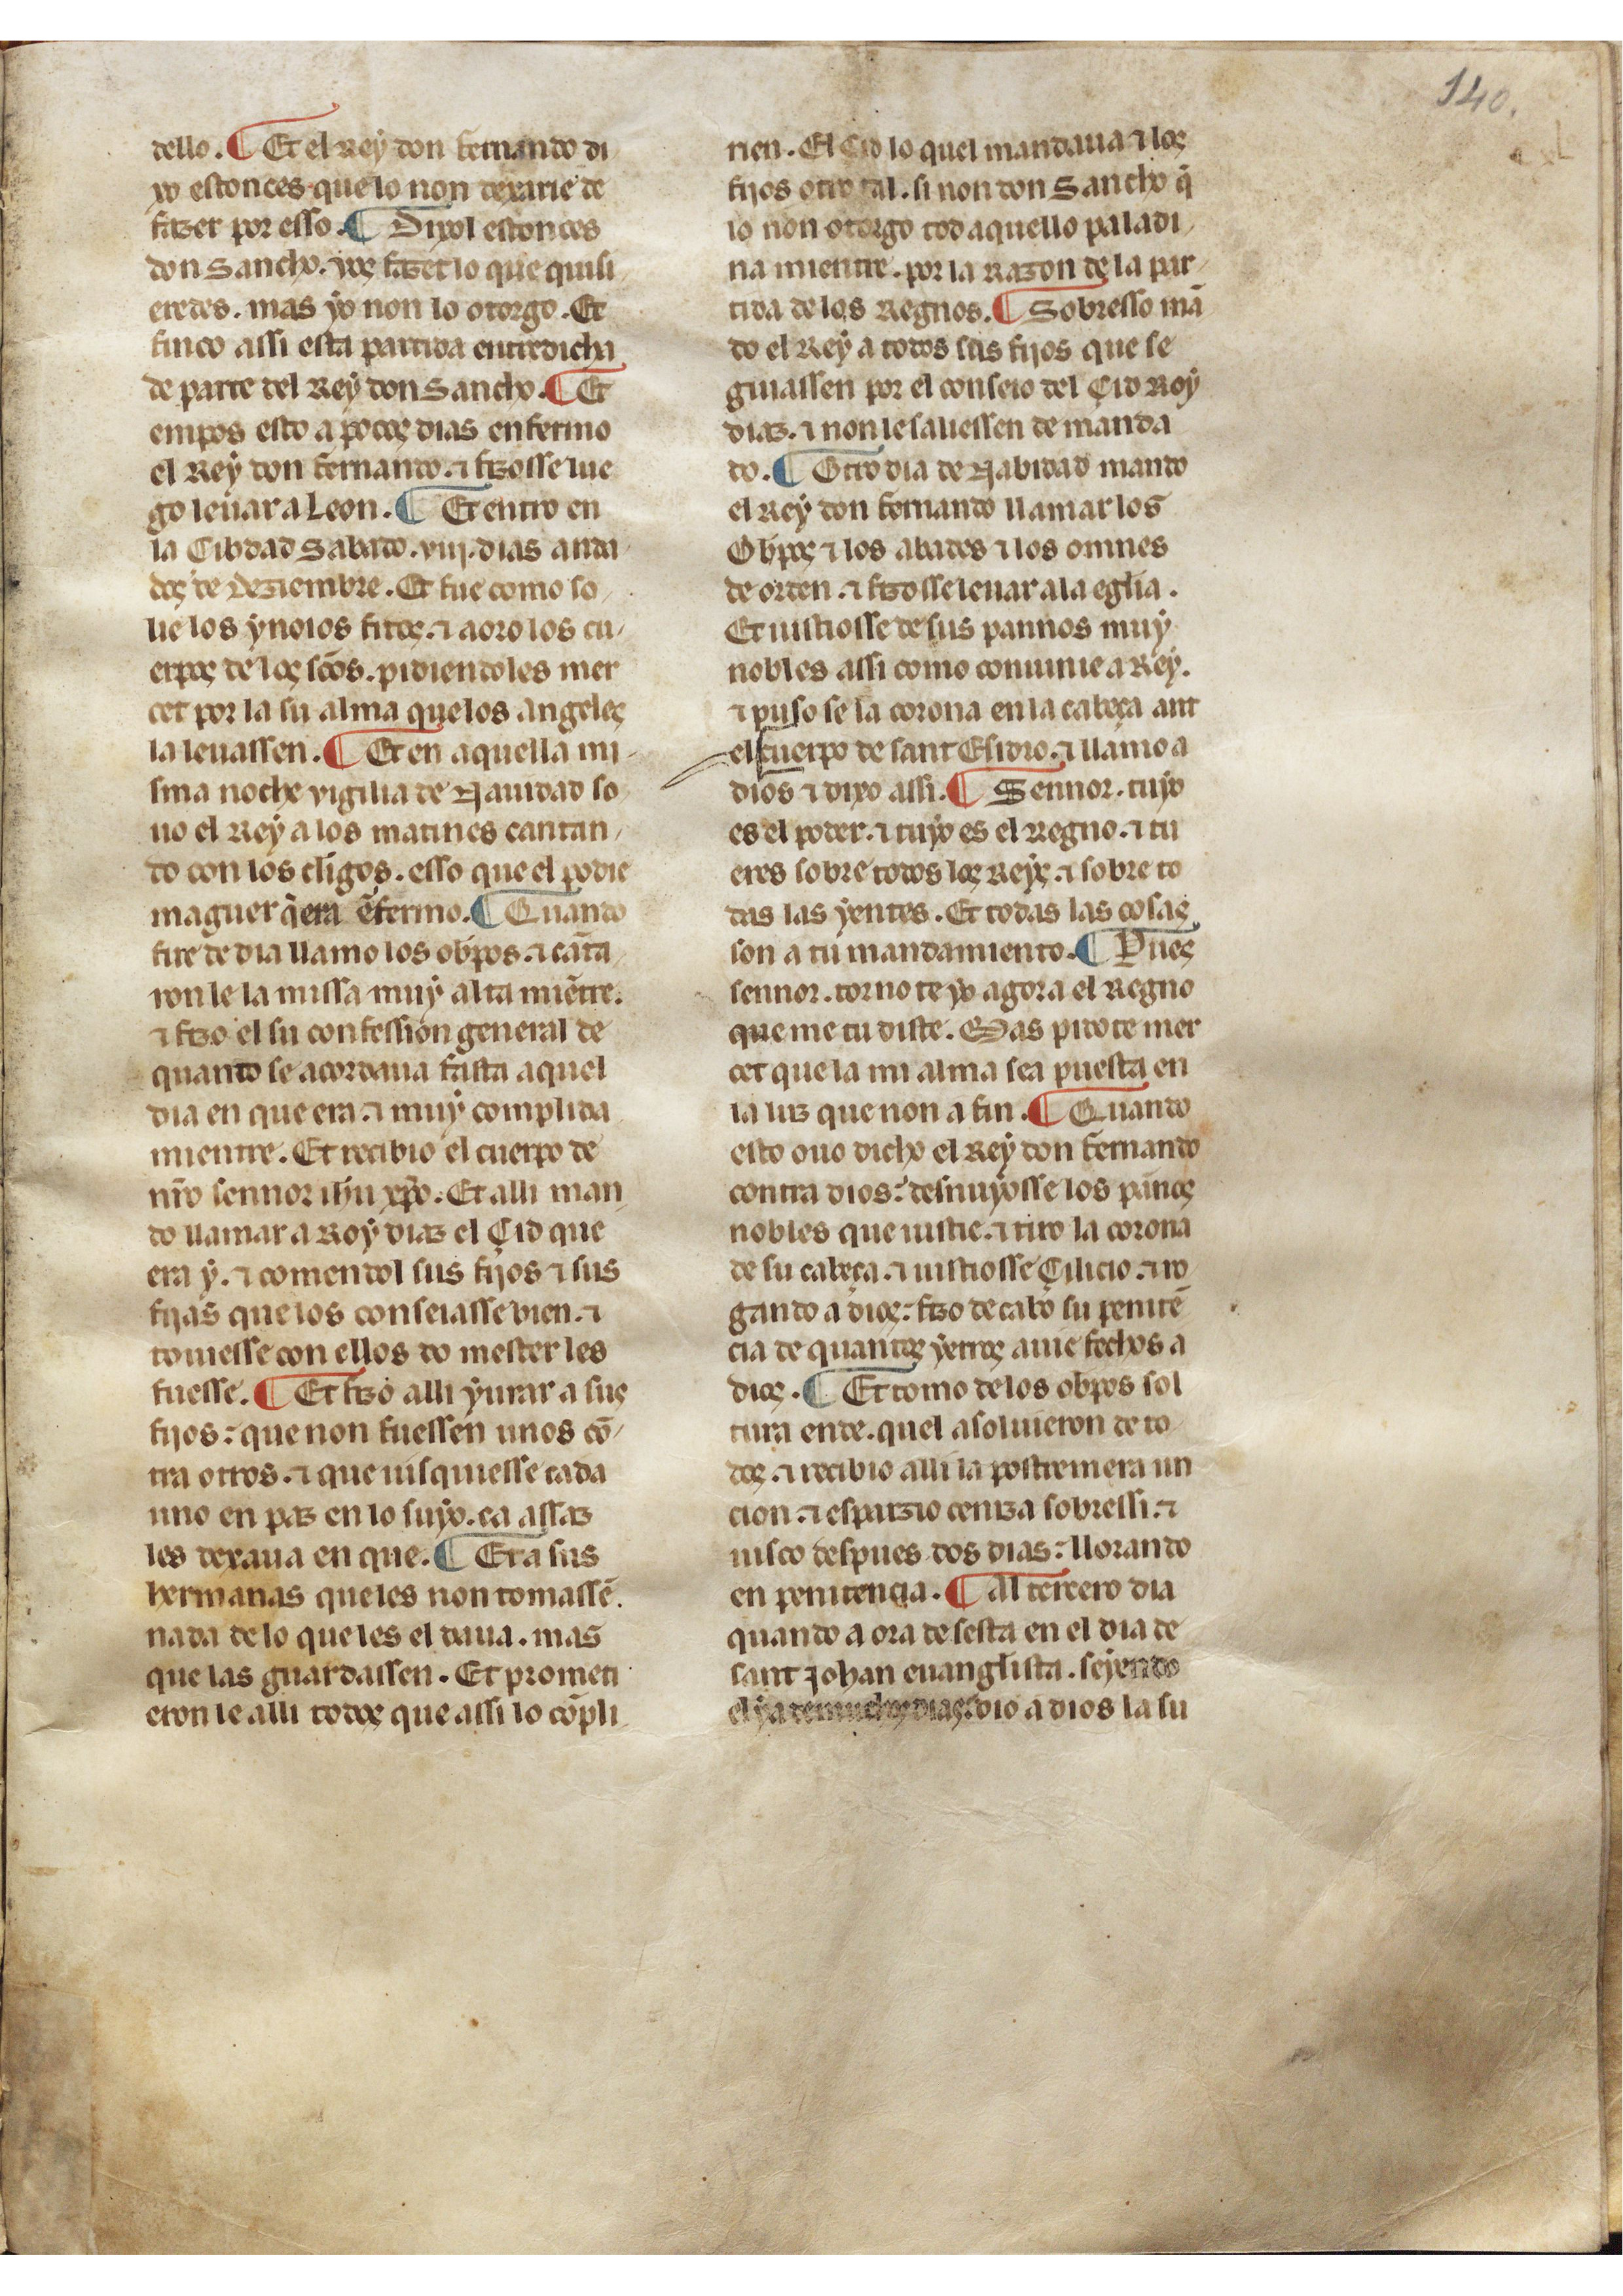 140.
dello. ¶ Et el Rey don fernando di
xo estonces que lo non dexarie de
fazer por esso. ¶ Dixol estonces
don Sancho. uos fazet lo que quisi
eredes. mas yo non lo otorgo. Et
finco assi esta partida entredicha
de parte del Rey don Sancho. ¶ Et
empos esto a pocos dias enfermo
el Rey don fernando. ⁊ fizosse lue
go leuar a Leon. ¶ Et entro en
la Cibdad Sabado. viij. dias anda
dos de deziembre. Et fue como so
lie los ynoios fitos. ⁊ aoro los cu
erpos de los sc̃os. pidiendoles mer
cet por la su alma que los angeles
la leuassen. ¶ Et en aquella mi
sma noche vigilia de Nauidad so
uo el Rey a los matines cantan
do con los cligos. esso que el podie
maguer q̃ era ẽfermo. ¶ Quando
fue de dia llamo los obpos. ⁊ cãta
ron le la missa muy alta miẽtre.
⁊ fizo el su confession general de
quanto se acordaua fasta aquel
dia en que era. ⁊ muy complida
mientre. Et recibio el cuerpo de
nr̃o sennor ihu xp̃o. Et alli man
do llamar a Roy diaz el Çid que
era y. ⁊ comendol sus fijos ⁊ sus
fijas que los conseiasse bien. ⁊
touiesse con ellos do mester les
fuesse. ¶ Et fizo alli yurar a sus
fijos: que non fuessen unos cõ
tra otros. ⁊ que uisquiesse cada
uno en paz en lo suyo. ca assaz
les dexaua en que. ¶ Et a sus
hermanas que les non tomassẽ.
nada de lo que les el daua. mas
que las guardassen. Et prometi
eron le alli todos que assi lo cõpli
rien. El Çid lo quel mandaua ⁊ los
fijos otro tal. si non don Sancho q̃
lo non otorgo tod aquello paladi
na mientre. por la Razon de la par
tida de los Regnos. ¶ Sobresso mã
do el Rey a todos sus fijos que se
guiassen por el conseio del Çid Roy
diaz. ⁊ non le saliessen de manda
do. ¶ Otro dia de Nabidad mando
el Rey don fernando llamar los
Obpos ⁊ los abades ⁊ los omnes
de orden. ⁊ fizosse leuar a la eglia.
Et uistiosse de sus pannos muy
nobles assi como conuinie a Rey.
⁊ puso se la corona en la cabeça ant
el cuerpo de sant Esidro. ⁊ llamo a
dios ⁊ dixo assi. ¶ Sennor. tuyo
es el poder. ⁊ tuyo es el Regno. ⁊ tu
eres sobre todos los Reys. ⁊ sobre to
das las yentes. Et todas las cosas
son a tu mandamiento. ¶ Pues
sennor. torno te yo agora el Regno
que me tu diste. Mas pido te mer
cet que la mi alma sea puesta en
la luz que non a fin. ¶ Quando
esto ouo dicho el Rey don fernando
contra dios: desnuyosse los panos
nobles que uistie. ⁊ tiro la corona
de su cabeça. ⁊ uistiosse Çilicio. ⁊ ro
gando a dios: fizo de cabo su penitẽ
cia de quantos yerros auie fechos a
dios. ¶ Et tomo de los obpos sol
tura ende. quel asoluieron de to
dos. ⁊ recibio alli la postremera un
cion. ⁊ esparzio ceniza sobressi. ⁊
uisco despues dos dias: llorando
en penitencia. ¶ Al tercero dia
quando a ora de sesta en el dia de
sant Johan euanglista. seyendo
el ya de muchos dias: dio a dios la su